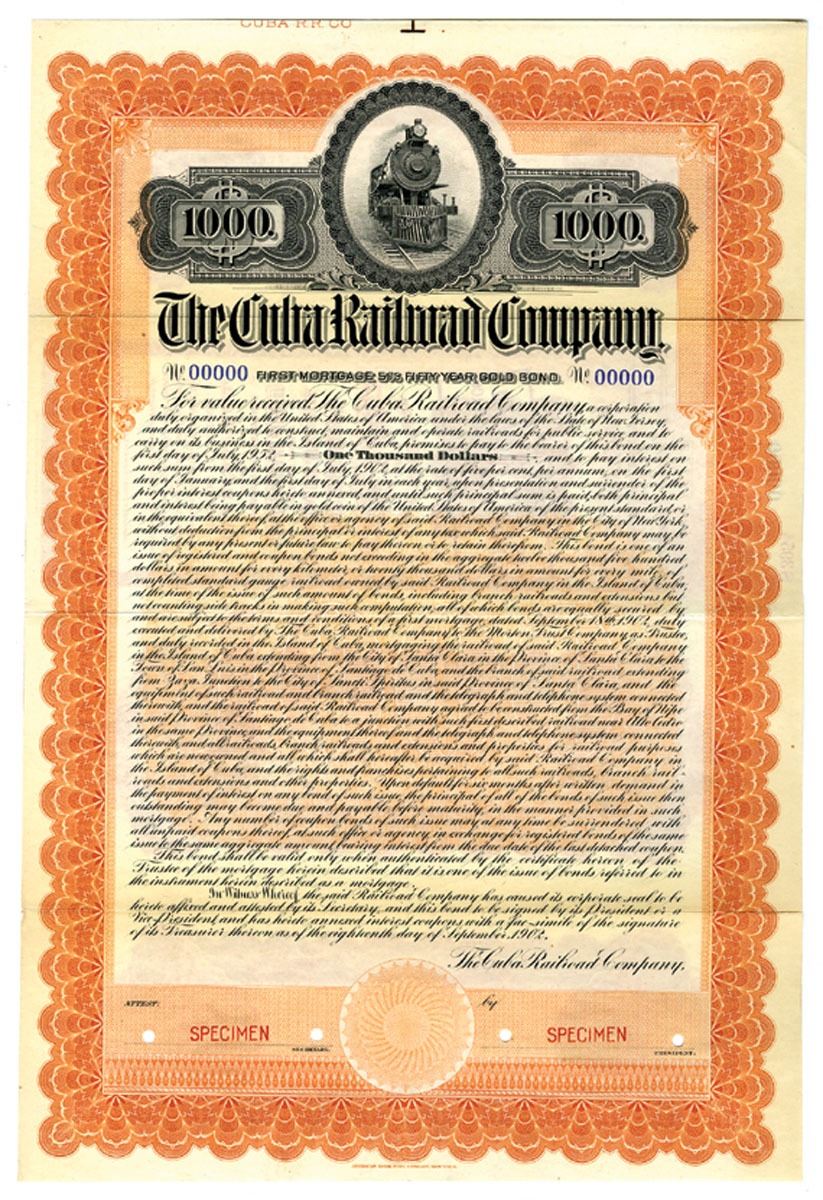 CUBA R R CO
$ 1000. $ 1000.
The Cuba Railroad Company.
No. 00000 FIRST MORTGAGE 5% FIFTY YEAR GOLD BOND. No. 00000
For value received, The Cuba Railroad Company, a corporation
duly organized in the United States of America under the laws of the State of New Jersey,
and duly authorized to construct, maintain and operate railroads for public service and to
carry on its business in the Island of Cuba, promises to pay to the bearer of this bond on the
first day of July, 1952, One Thousand Dollars and to pay interest on
such sum from the first day of July, 1902, at the rate of five per cent. per annum, on the first
day of January, and the first day of July in each year, upon presentation and surrender of the
proper interest coupons hereto annexed, and until such principal sum is paid, both principal
and interest being payable in gold coin of the United States of America of the present standard, or
in the equivalent thereof, at the office or agency of said Railroad Company in the City of New York,
without deduction from the principal or interest of any tax which said Railroad Company may be
required by any present or future law to pay thereon or to retain therefrom. This bond is one of an
issue of registered and coupon bonds not exceeding in the aggregate twelve thousand five hundred
dollars in amount for every kilometer, or twenty thousand dollars in amount for every mile, of
completed standard gauge railroad owned by said Railroad Company in the Island of Cuba
at the time of the issue of such amount of bonds, including branch railroads and extensions but
not counting side tracks in making such computation, all of which bonds are equally secured by
and are subject to the terms and conditions of a first mortgage, dated September 18th, 1902, duly
executed and delivered by The Cuba Railroad Company to the Morton Trust Company, as Trustee,
and duly recorded in the Island of Cuba, mortgaging the railroad of said Railroad Company
in the Island of Cuba, extending from the City of Santa Clara in the Province of Santa Clara to the
Town of San Luis in the Province of Santiago de Cuba, and the branch of said railroad extending
from Zaza Junction to the City of Sancti Spiritus in said Province of Santa Clara, and the
equipment of such railroad and branch railroad and the telegraph and telephone system connected
therewith, and the railroad of said Railroad Company agreed to be constructed from the Bay of Nipe
in said Province of Santiago de Cuba to a junction with such first described railroad near Alto Cedro
in the same Province, and the equipment thereof and the telegraph and telephone system connected
therewith, and all railroads, branch railroads and extensions and properties for railroad purposes
which are now owned and all which shall hereafter be acquired by said Railroad Company in
the Island of Cuba, and the rights and franchises pertaining to all such railroads, branch rail-
roads and extensions and other properties. Upon default for six months after written demand in
the payment of interest on any bond of such issue, the principal of all of the bonds of such issue then
outstanding may become due and payable before maturity in the manner provided in such
mortgage. Any number of coupon bonds of such issue may at any time be surrendered, with
all unpaid coupons thereof, at such office or agency, in exchange for registered bonds of the same
issue to the same aggregate amount, bearing interest from the due date of the last detached coupon.
This bond shall be valid only when authenticated by the certificate hereon of the
Trustee of the mortgage herein described that it is one of the issue of bonds referred to in
the instrument herein described as a mortgage.
In Witness Whereof, the said Railroad Company has caused its corporate seal to be
hereto affixed and attested by its Secretary, and this bond to be signed by its President or a
Vice President, and has hereto annexed interest coupons with a fac-simile of the signature
of its Treasurer thereon as of the eighteenth day of September, 1902.
The Cuba Railroad Company,
ATTEST: by
SPECIMEN SPECIMEN
SECRETARY. PRESIDENT.
AMERICAN BANK NOTE COMPANY, NEW YORK.